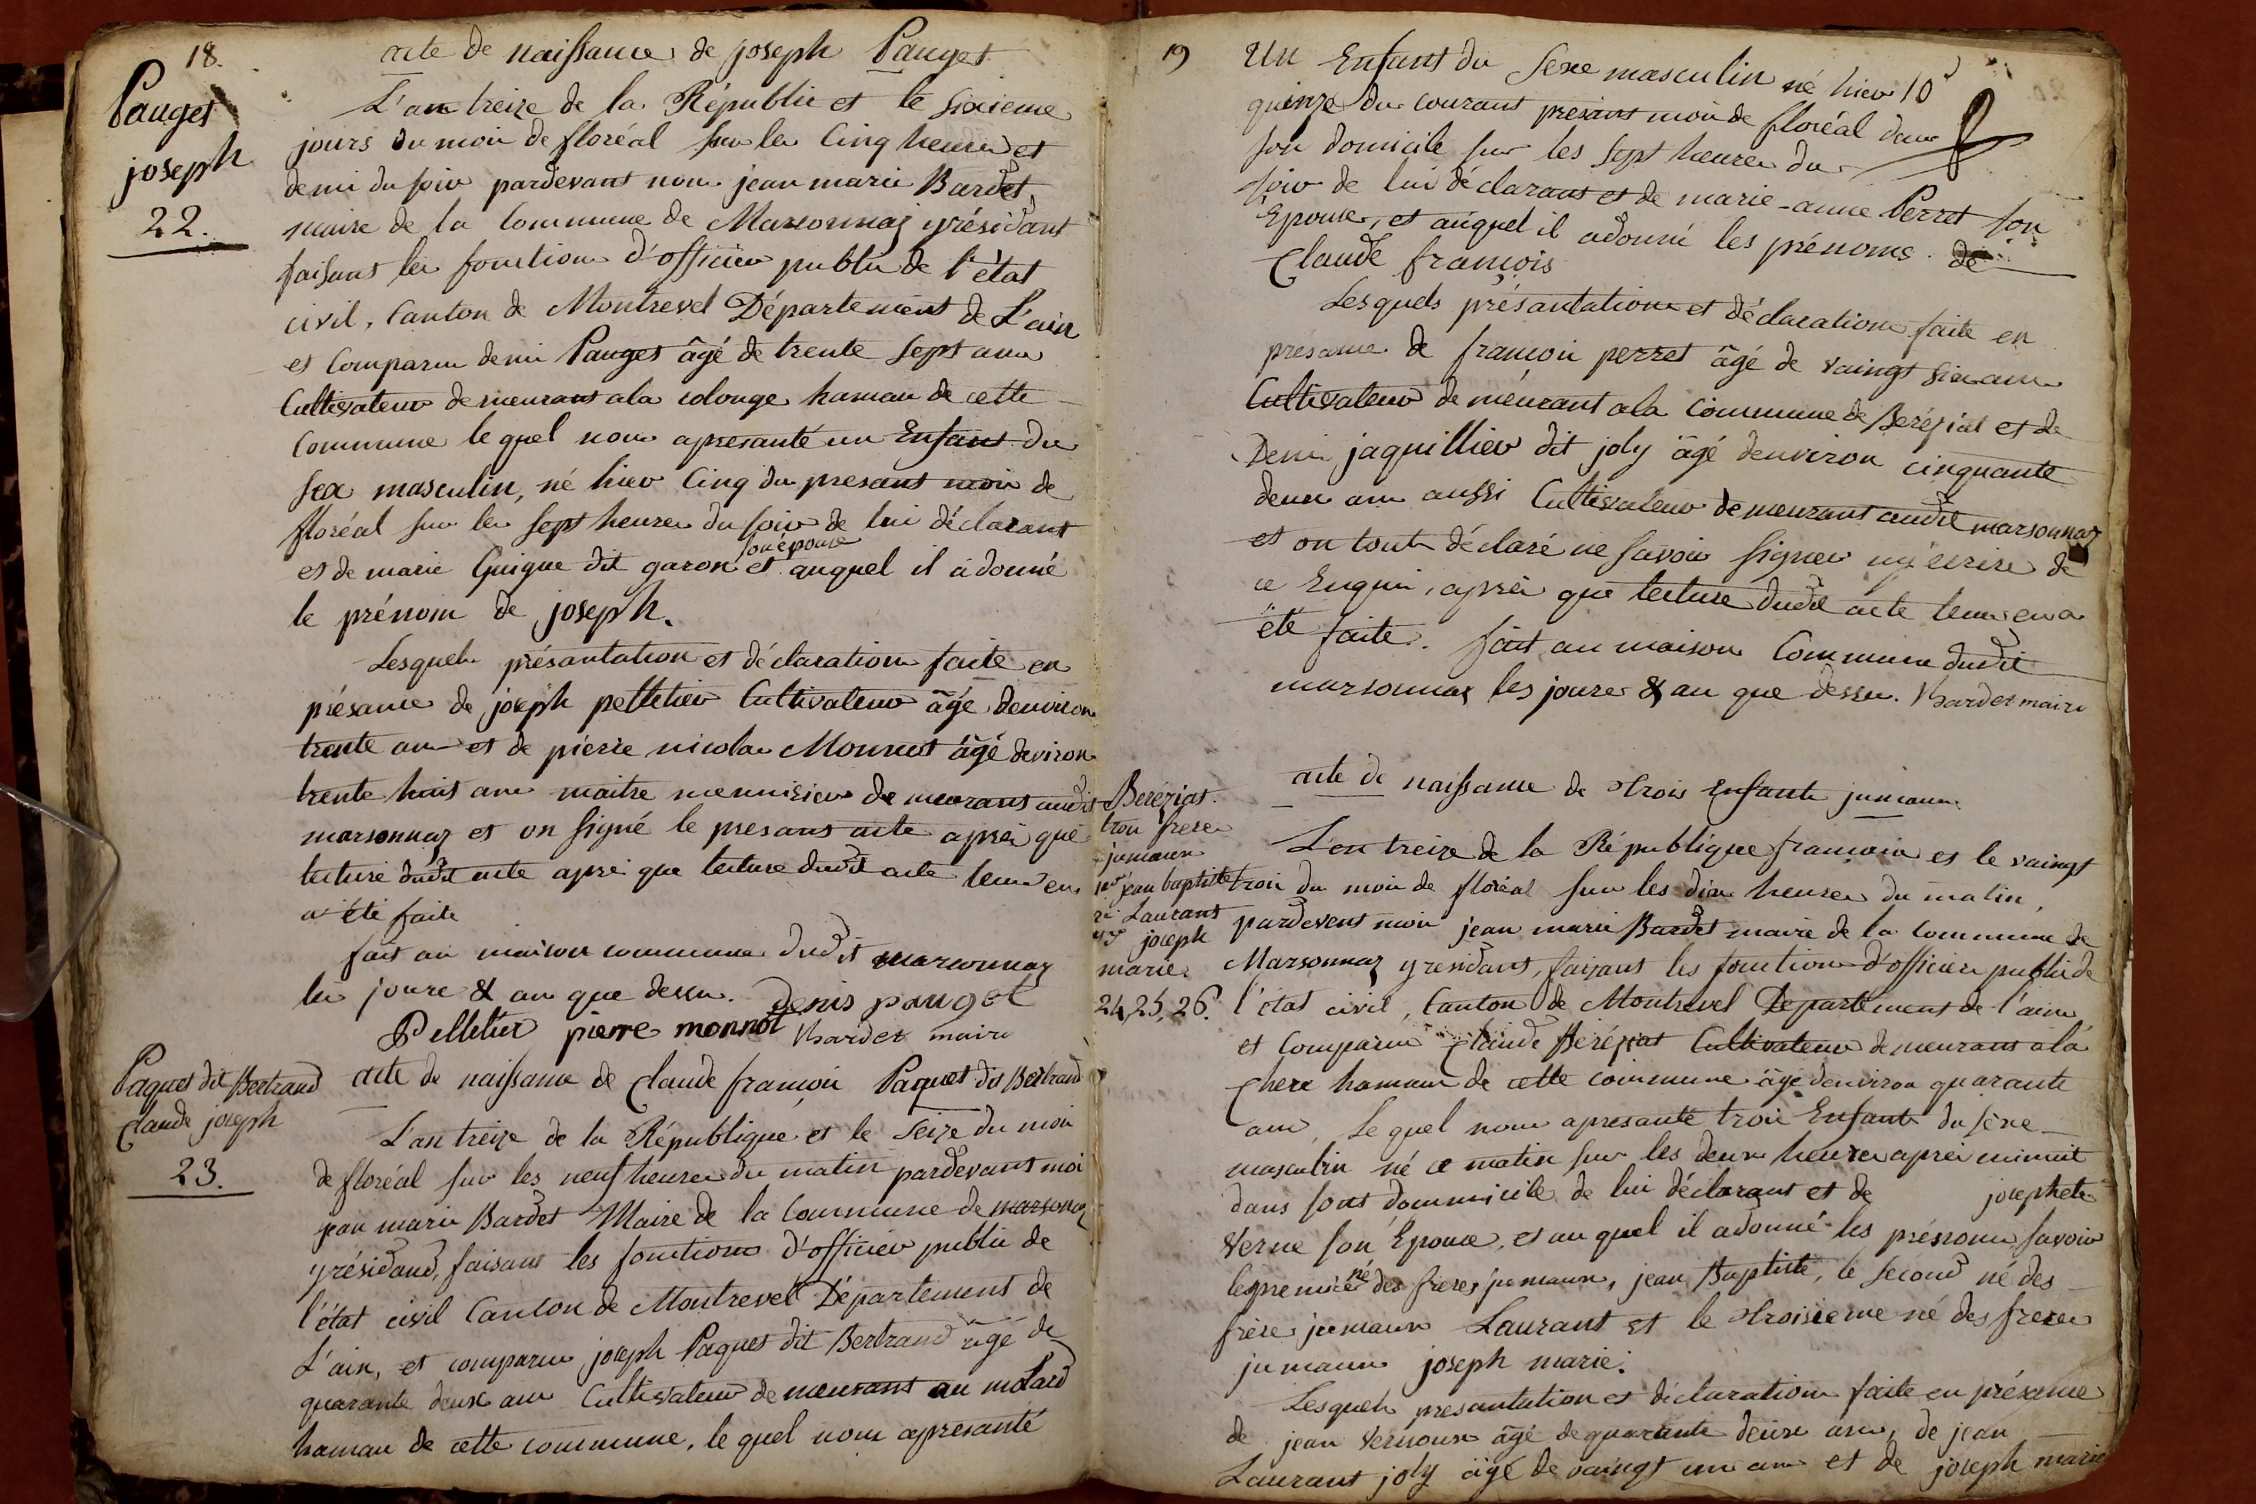 18.
Pauget
joseph
22.
acte de naissance de joseph Pauget
L'an treize de la Républic et le sixieme
jours du mois de floréal sur les Cinq heures et
demi du soir pardevant nous jean marie Bardet
maire de la Commune de Marsonnaz y résidant
faisant les fonctions d'officier public de l'état
civil, Canton de Montrevel Département de L'ain
et Comparu denis Pauget âgé de trente sept ans
Cultivateur demeurant a la colonge hamau de cette
Commune le quel nous a presanté un Enfant du
sex masculin, né hier Cinq du presant mois de
floréal sur les sept heures du soir de lui déclarant
et de marie Guigue dit garon son épouse et auquel il a donné
le prénom de joseph.
Lesquels présantation et déclaration faite en
présance de joseph pelletier Cultivateur âgé d'environ
trente ans et de pierre nicolas Monnet âgé deviron
trente huit ans maitre mennisier demeurant audit
marsonnaz et on signé le presant acte après que
lecture dudit acte apre que lecture dudit acte leur en
a été faite
fait au maison commune dudit marsonnaz
les jours & an que dessu. Denis pauget
Pelletier pierre monnot Bardet maire
Paquet dit Bertrand
Claude joseph
23.
acte de naissance de Claude françois Paquet dit Bertrand
L'an treize de la République et le Seize du mois
de floréal sur les neuf heures du matin pardevant moi
jean marie Bardet Maire de la Commune de marsonaz
y résidand, faisant les fonctions d'officier public de
l'état civil Canton de Montrevel Département de
L'ain, et comparu joseph Paquet dit Bertrand âgé de
quarante deux ans Cultivateur demeurant au molard
hamau de cette commune, le quel nous a presanté
19
Un Enfant du Sexe masculin né hier 10
quinze du courant presant mois de floréal dans
son domicile sur les sept heures du
soir de lui déclarant et de marie-anne Perret son
Epouse, et auquel il a donné les prénoms de
Claude françois
Lesquels présantation et déclaration faite en
présance de françois perret âgé de vaingt six ans
Cultivateur demeurant a la Commune de Beréziat et de
Denis jaquillier dit joly âgé d'environ cinquante
deux ans aussi Cultivateur demeurant audit marsonnaz
et on touts déclaré ne savoir signer ny écrire de
ce Enquis, après que lecture dudit acte leur en a
été faite. fait au maison Commune dudit
marsonnaz les jours & an que dessu. Bardet maire
Beréziat
trois freres
jumeaux
1er jean baptiste
2e Laurant
3e joseph
marie
24, 25, 26.
acte de naissance de trois Enfants jumeaux
L'an treize de la République françois et le vaingt
trois du mois de floréal sur les dix heures du matin,
pardevent moi jean marie Bardet maire de la Commune de
Marsonnaz y residant, faisant les fonctions d'officier public de
l'état civil, Canton de Montrevel Département de l'ain
et Comparu Claude Beréziat Cultivateur demeurant a la
Chere hamau de cette commune âgé d'environ quarante
ans, Le quel nous a presanté trois Enfants du sexe
masculin né ce matin sur les deux heures après minuit
dans sont dommicile de lui déclarant et de josephete
Verne son Epouse, et au quel il a donné les prénoms, savoir
le premier né des freres jumaux, jean Baptiste, le second né des
frere jumaux Laurant et le troisieme né des freres
jumaux joseph marie.
Lesquels presantation et déclaration faite en présance
de jean Vernoux âgé de quarante deux ans, de jean
Laurant joly âgé de vaingt un ans et de joseph marie